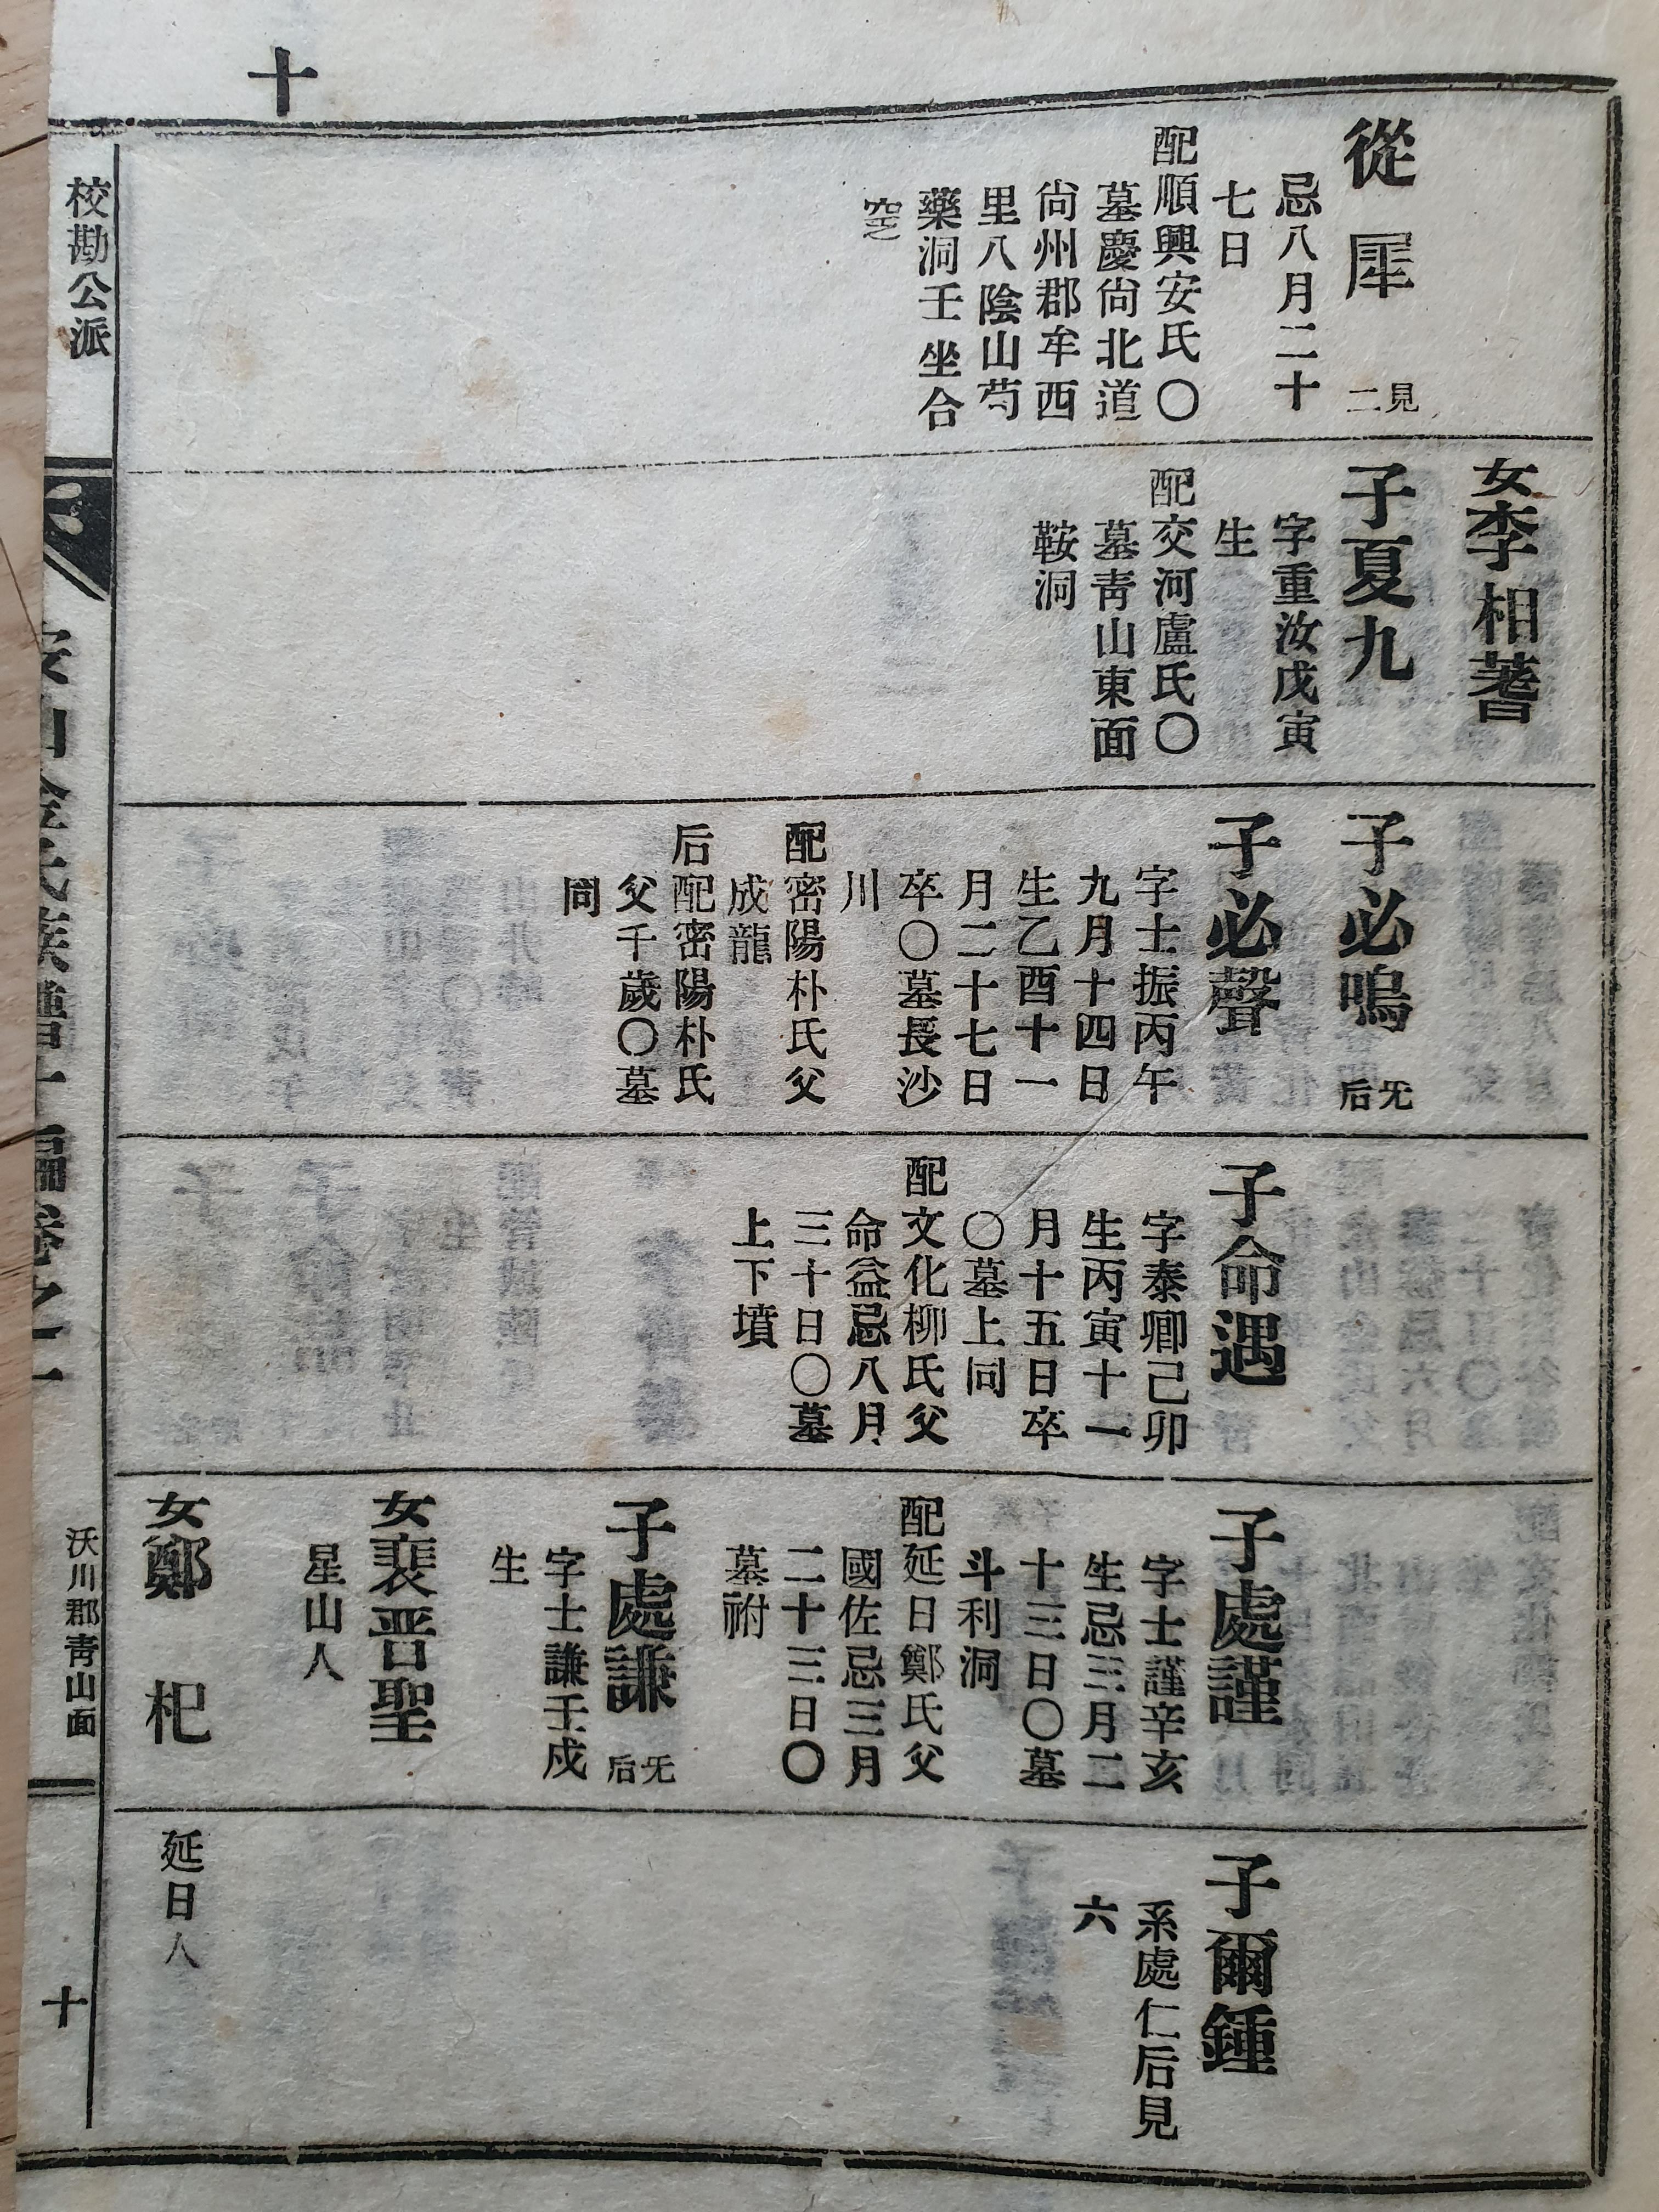 十
從犀 見二
忌八月二十
七日
配順興安氏〇
墓慶尙北道
尙州郡牟西
里八陰山芍
藥洞壬坐合
窆
女李相蓍
子夏九
字重汝戊寅
生
配交河盧氏〇
墓靑山東面
鞍洞
子必鳴 无后
子必聲
字士振丙午
九月十四日
生乙酉十一
月二十七日
卒〇墓長沙
川
配密陽朴氏父
成龍
后配密陽朴氏
父千歲〇墓
同
子命遇
字泰卿己卯
生丙寅十一
月十五日卒
〇墓上同
配文化柳氏父
命益忌八月
三十日〇墓
上下墳
子處謹
字士謹辛亥
生忌三月二
十三日〇墓
斗利洞
配延日鄭氏父
國佐忌三月
二十三日〇
墓祔
子處謙 无后
字士謙壬戌
生
女裵晋聖
星山人
女鄭杞
延日人
子爾鍾
系處仁后見
六
校勘公派
山金氏族譜十編卷之十
沃川郡靑山面
十